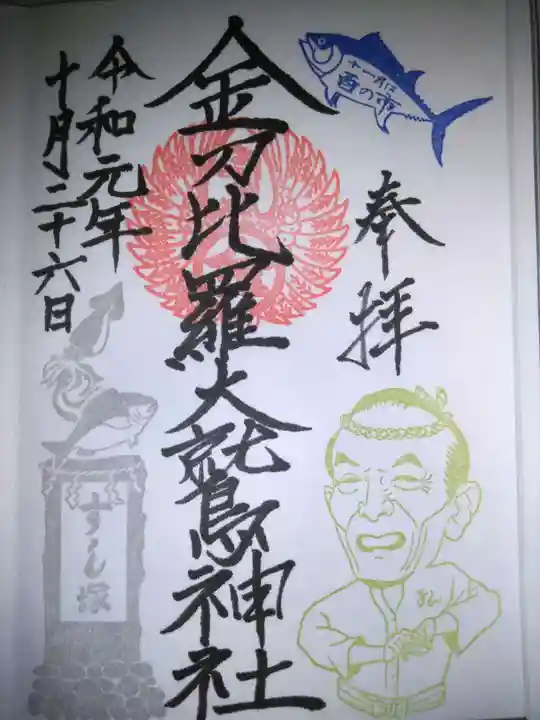 十一月は
酉の市
奉拝
金刀比羅大鷲神社
令和元年
十月二十六日
すし塚